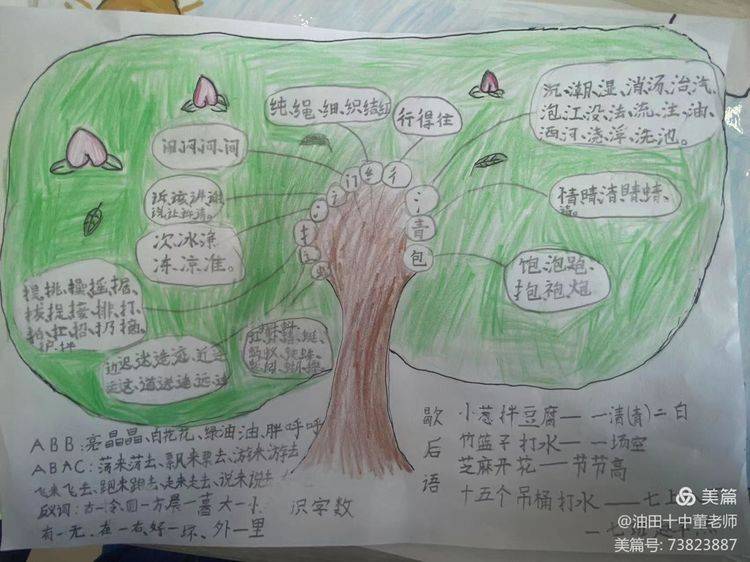 纯、绳、组、织结红
行得往
沉、潮、湿、消汤、治汽、
泡江没法、流、注、油、
洒河、浇、浮、洗、池。
情晴、清、睛蜻、
请。
饱、泡跑、
抱、袍、炮
次、冰渔
冻、凉准。
提、挑、操摇、据、
拔捉、接、排、打、
拍、扛、招、扔、摘、
护、拌
迟、迷造、近、
运这、道进速远、
门
纟
彳
氵
讠
青
包
ABB:亮晶晶、白花花、绿油油、胖呼呼
ABAC:荡来荡去、飘来票去、游来游去
飞来飞去、跑来跑去、走来走去、说来说去
反义词:古一今、圆一方晨一暮大一小
有一无、在一右、好一坏、外一里
识字数
歇后语
小葱拌豆腐— 一清(青)二白
竹篮子打水——一场空
芝麻开花——节节高
十五个吊桶打水——七上
美篇
@油田十中董老师
美篇号: 73823887